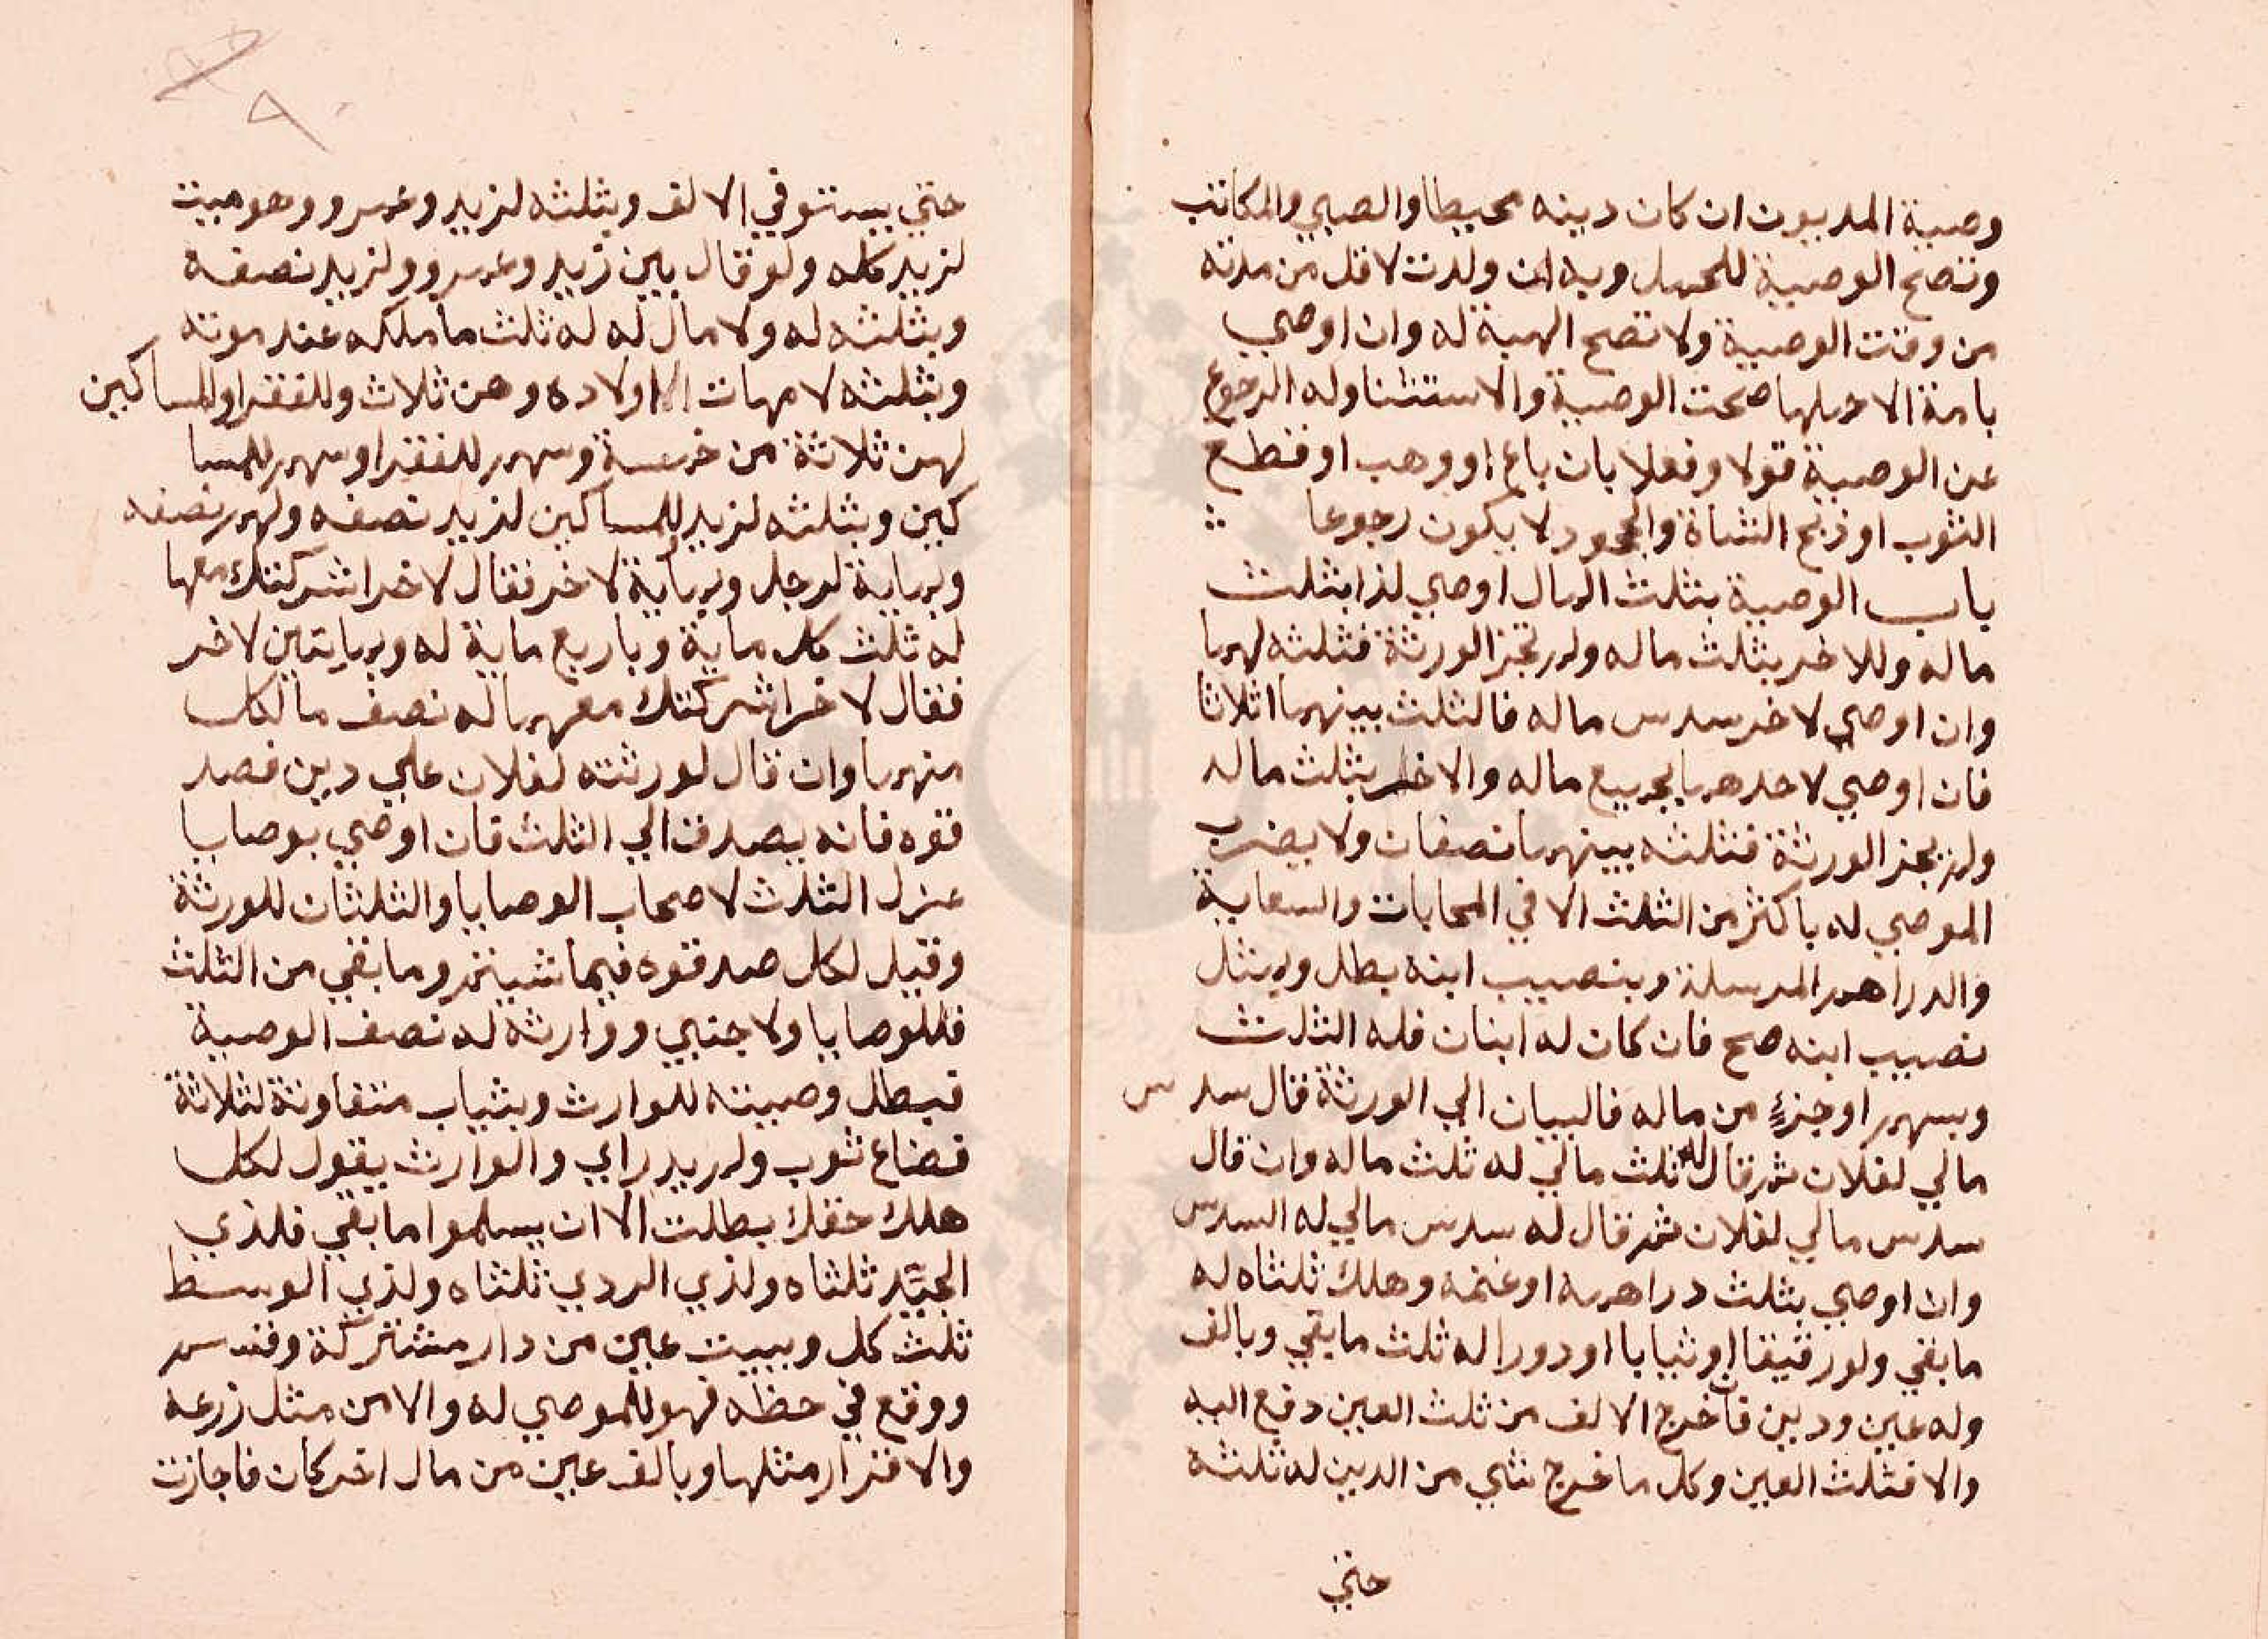 وصية المديون ان كان دينه محيطا والصبي والمكاتب
وتصح الوصية للحمل وبه ان ولدت لاقل من مدته
من وقت الوصية ولا تصح الهبة له وان اوصي
بامة الا حملها صحت الوصية والاستثنا وله الرجوع
عن الوصية قولا وفعلا بان باع او وهب او قطع
الثوب او ذبح الشاة والجحود لا يكون رجوعا
باب الوصية بثلث المال اوصي لذا بثلث
ماله وللاخر بثلث ماله ولم تجز الورثة فثلثه لهما
وان اوصي لاخر سدس ماله فالثلث بينهما اثلاثا
فان اوصي لاحدهما بجميع ماله والاخر بثلث ماله
ولم يجز الورثة فثلثه بينهما نصفان ولا يضرب
الموصي له باكثر من الثلث الا في المحابات والسعاية
والدراهم المرسلة وبنصيب ابنه بطل وبمثل
نصيب ابنه صح فان كان له ابنان فله الثلث
وبسهم او جزء من ماله فالبيان الي الورثة قال سدس
مالي لفلان ثم قال له ثلث مالي له ثلث ماله وان قال
سدس مالي لفلان ثم قال له سدس مالي له السدس
وان اوصي بثلث دراهمه او غنمه وهلك ثلثاه له
ما بقي ولو رقيقا او ثيابا او دورا له ثلث ما بقي وبالف
وله عين ودين فان خرج الالف من ثلث العين دفع اليه
والا فثلث العين وكل ما خرج شي من الدين له ثلثه
حتي
حتي يستوفي الالف وبثلثه لزيد وعمرو وهو ميت
لزيد كله ولو قال بين زيد وعمرو ولزيد نصفه
وبثلثه له ولا مال له له ثلث ما ملكه عند موته
وبثلثه لامهات اولاده وهن ثلاث وللفقرا وللمساكين
لهن ثلاثة من خمسة وسهم للفقرا وسهم للمسا
كين وبثلثه لزيد للمساكين لزيد نصفه ولهم نصفه
وبماية لرجل وبماية لاخر فقال لاخر اشركتك معها
له ثلث كل ماية وباربع ماية له وبمايتين لاخر
فقال لاخر اشركتك معهما له نصف ما لكل
منهما وان قال لورثته لفلان علي دين فصد
قوه فانه يصدق الي الثلث فان اوصي بوصايا
عزل الثلث لاصحاب الوصايا والثلثان للورثة
وقيل لكل صدقوه فيما شيتم وما بقي من الثلث
فللوصايا ولاجنبي ووارثه له نصف الوصية
فبطل وصيته للوارث وبثياب متفاوتة لثلاثة
فضاع ثوب ولم يدر اي والوارث يقول لكل
هلك حقك بطلت الا ان يسلموا ما بقي فلذي
الجيّد ثلثاه ولذي الردي ثلثاه ولذي الوسط
ثلث كل وببيت عين من دار مشتركة وقسم
ووقع في حظه فهو للموصي له والا من مثل زرعه
والاقرار مثلها وبالف عين من مال اخر كان فاجازت